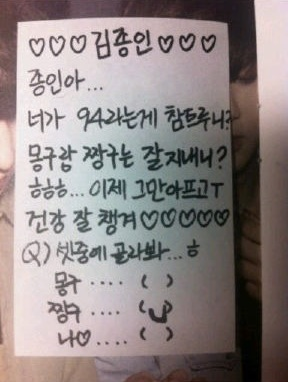 ♡♡♡김종인♡♡♡
종인아...
너가 94라는게 참트루니?
몽구랑 짱구는 잘지내니?
ㅎㅎㅎ... 이제 그만아프고ㅜ
건강 잘 챙겨♡♡♡♡♡
Q) 셋중에 골라봐...ㅎ
몽구 .... ( )
짱구 .... ( )
나♡.... ( )